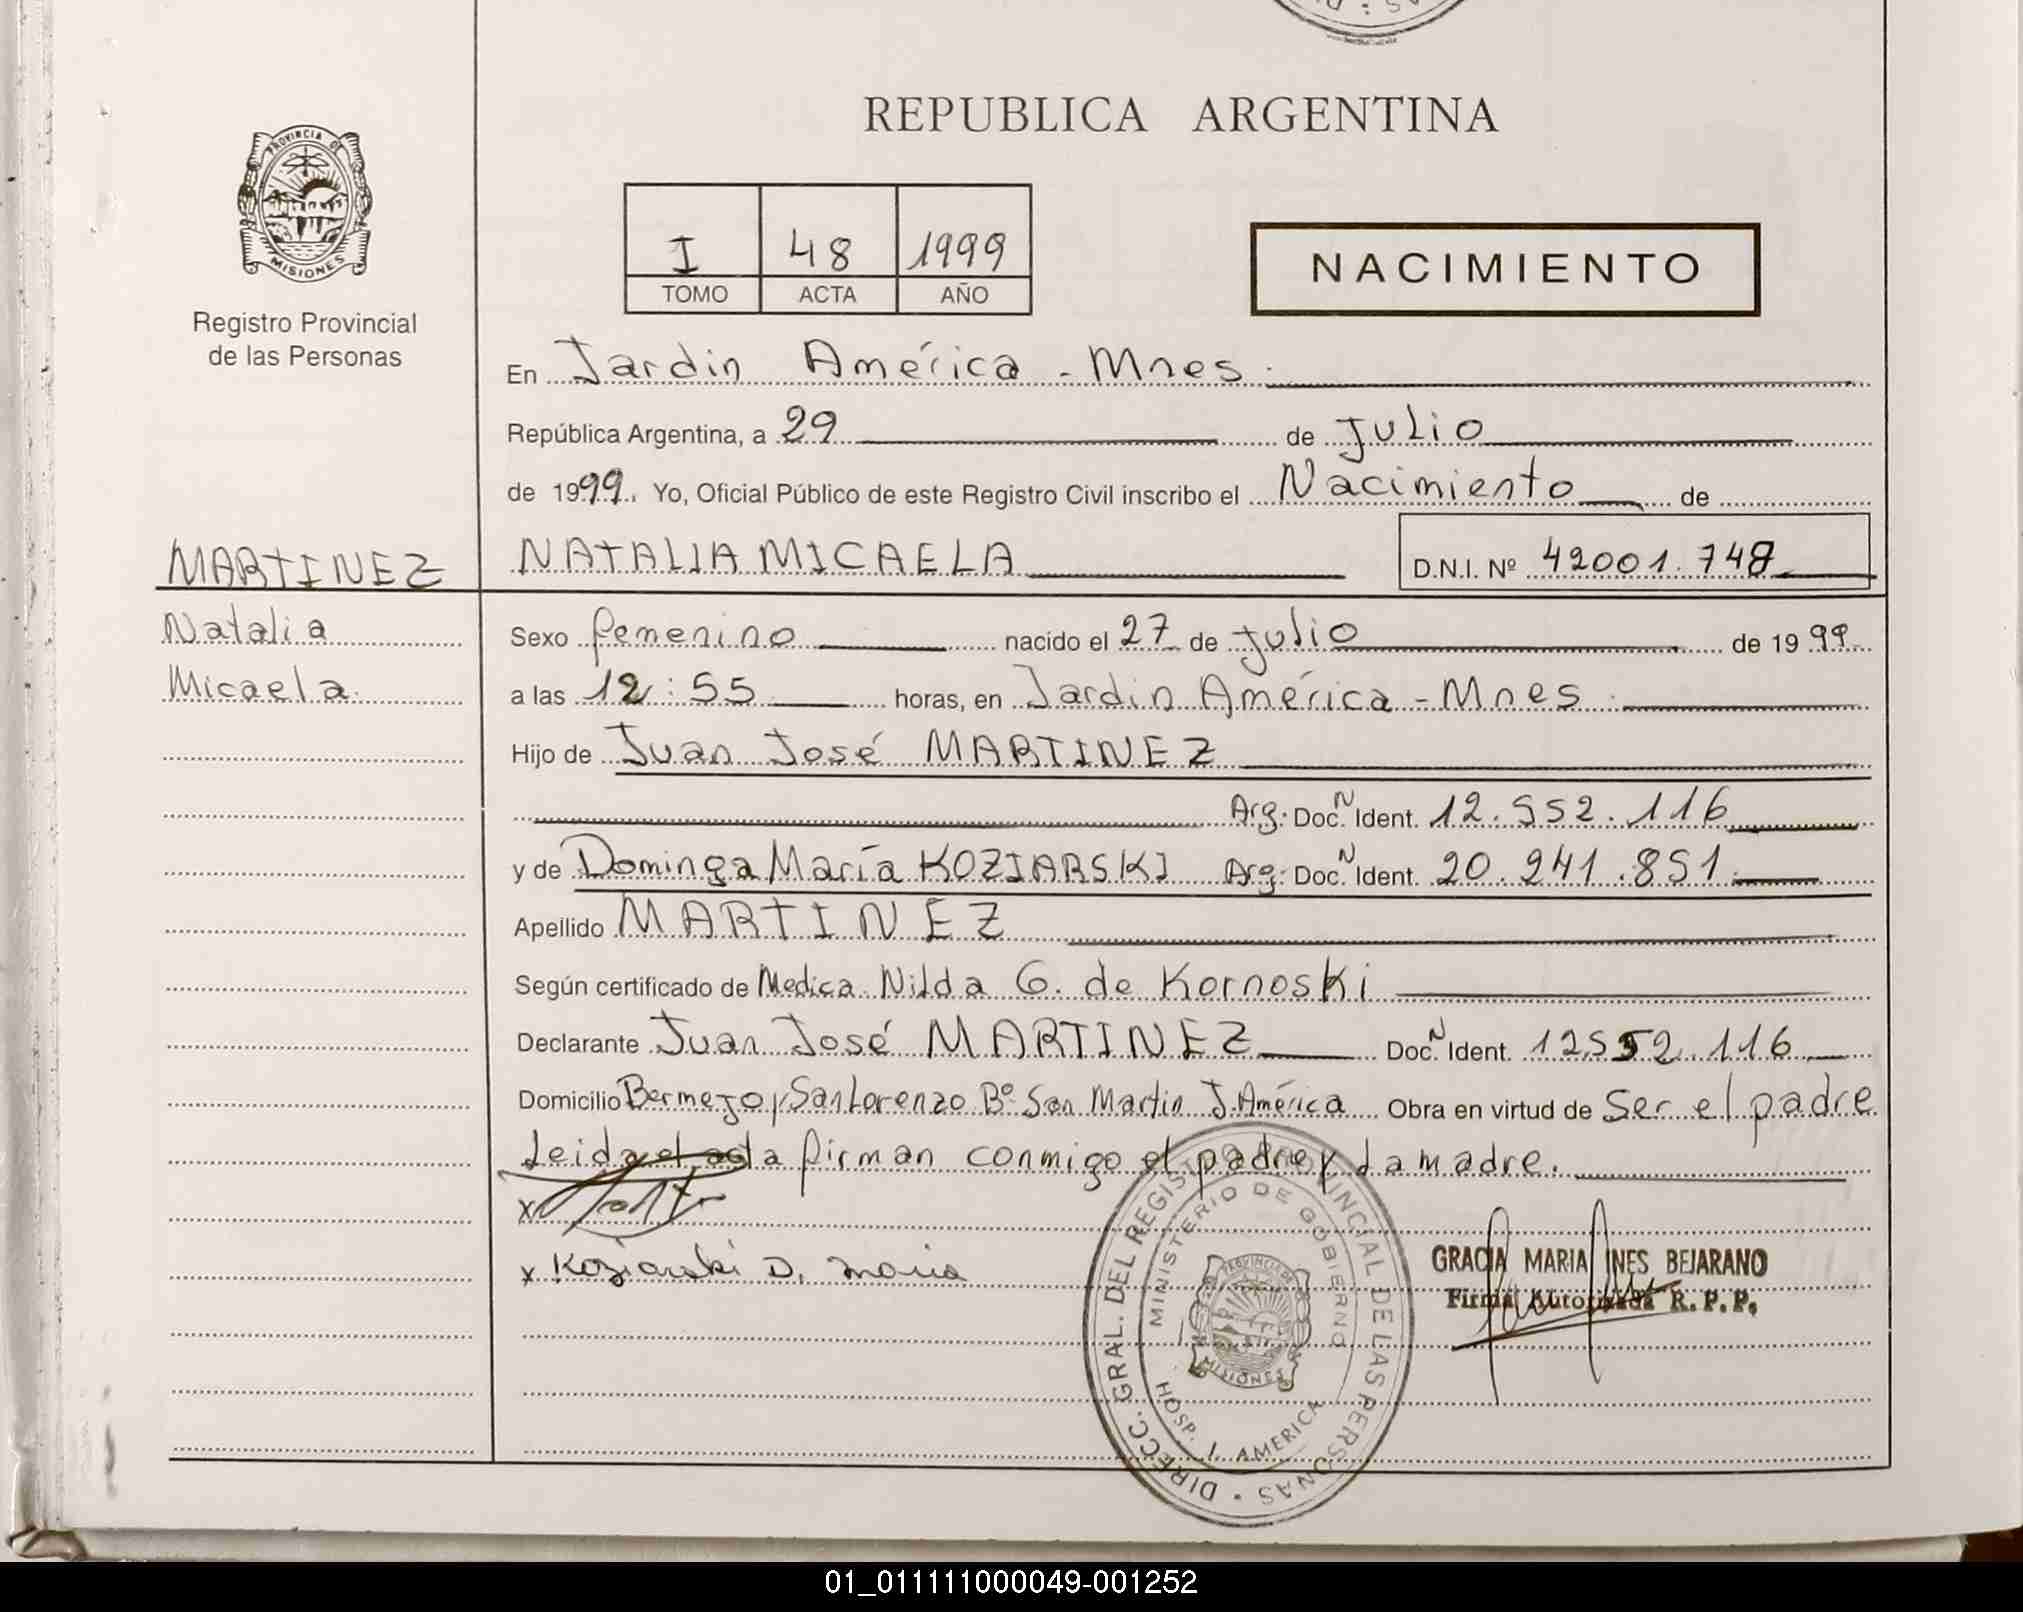 REPUBLICA ARGENTINA
PROVINCIA DE
MISIONES
Registro Provincial
de las Personas
I 48 1999
TOMO ACTA AÑO
NACIMIENTO
En Jardin América - Mnes.
República Argentina, a 29 de Julio
de 1999. Yo, Oficial Público de este Registro Civil inscribo el Nacimiento de
MARTINEZ NATALIA MICAELA D.N.I. Nº 42001.748
Natalia Sexo femenino nacido el 27 de julio de 1999
Micaela a las 12:55 horas, en Jardin América - Mnes.
Hijo de Juan José MARTINEZ
Arg. Doc. N Ident. 12.552.116
y de Dominga María KOZIARSKI Arg. Doc. N Ident. 20.241.851.
Apellido MARTINEZ
Según certificado de Medica Nilda G. de Kornoski
Declarante Juan José MARTINEZ Doc. N Ident. 12552.116
Domicilio Bermejo y San Lorenzo Bº San Martin J. América Obra en virtud de Ser el padre
Leida el acta firman conmigo el padre y la madre.
x
x Koziarski D. Maria
GRACIA MARIA INES BEJARANO
Firma Autorizada R. P. P.
DIRECC. GRAL. DEL REGISTRO PROVINCIAL DE LAS PERSONAS
MINISTERIO DE GOBIERNO
PROVINCIA DE
MISIONES
HOSP. J. AMERICA
01_011111000049-001252